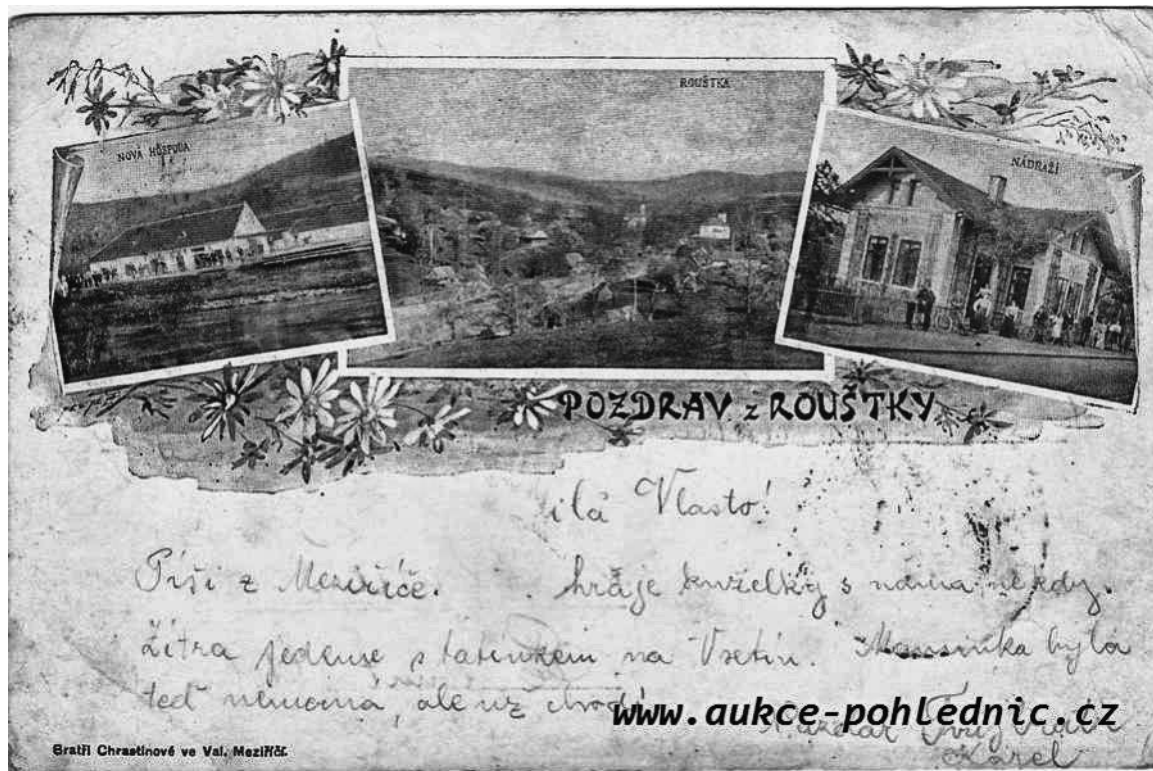 ROUŠTKA
NOVÁ HOSPODA
NÁDRAŽÍ
POZDRAV z ROUŠTKY
ilá Vlasto!
Píši z Meziříče. hráje kuželky s náma někdy.
Zítra jedeme s tatínkem na Vsetín. Maminka byla
teď nemocná, ale už chodí
www.aukce-pohlednic.cz
Tvůj
Karel
Bratři Chrastinové ve Val. Meziříčí.